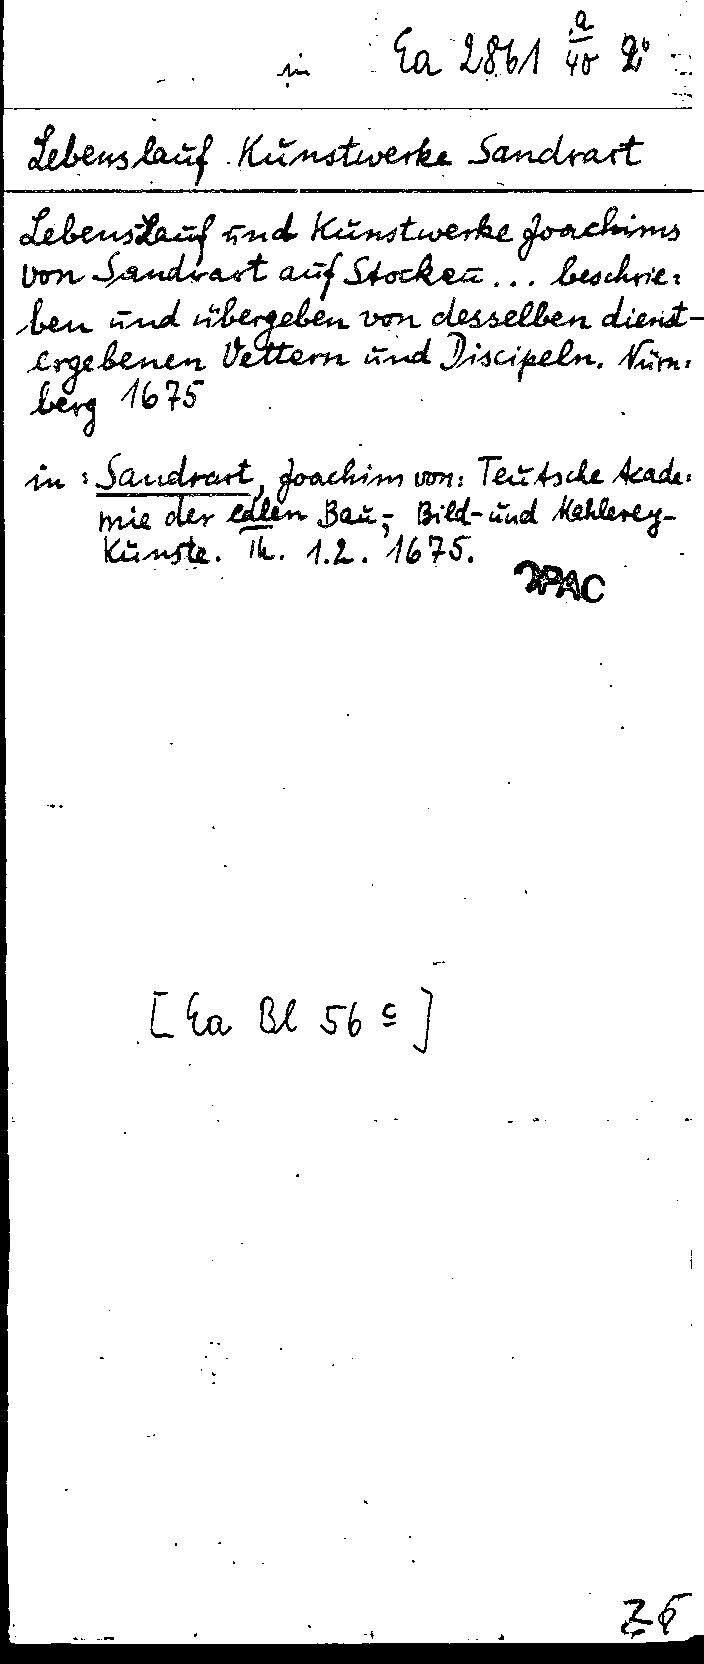 in Ea 2861 a/40 2°
Lebenslauf Kunstwerke Sandrart
Lebenslauf und Kunstwerke Joachims
von Sandrart auf Stockau... beschrie=
ben und übergeben von desselben dienst-
ergebenen Vettern und Discipeln. Nürn=
berg 1675
in: Sandrart, Joachim von: Teutsche Acade=
mie der edlen Bau-, Bild- und Mahlerey-
Künste. Th. 1.2. 1675.
OPAC
[Ea Bl 56 c]